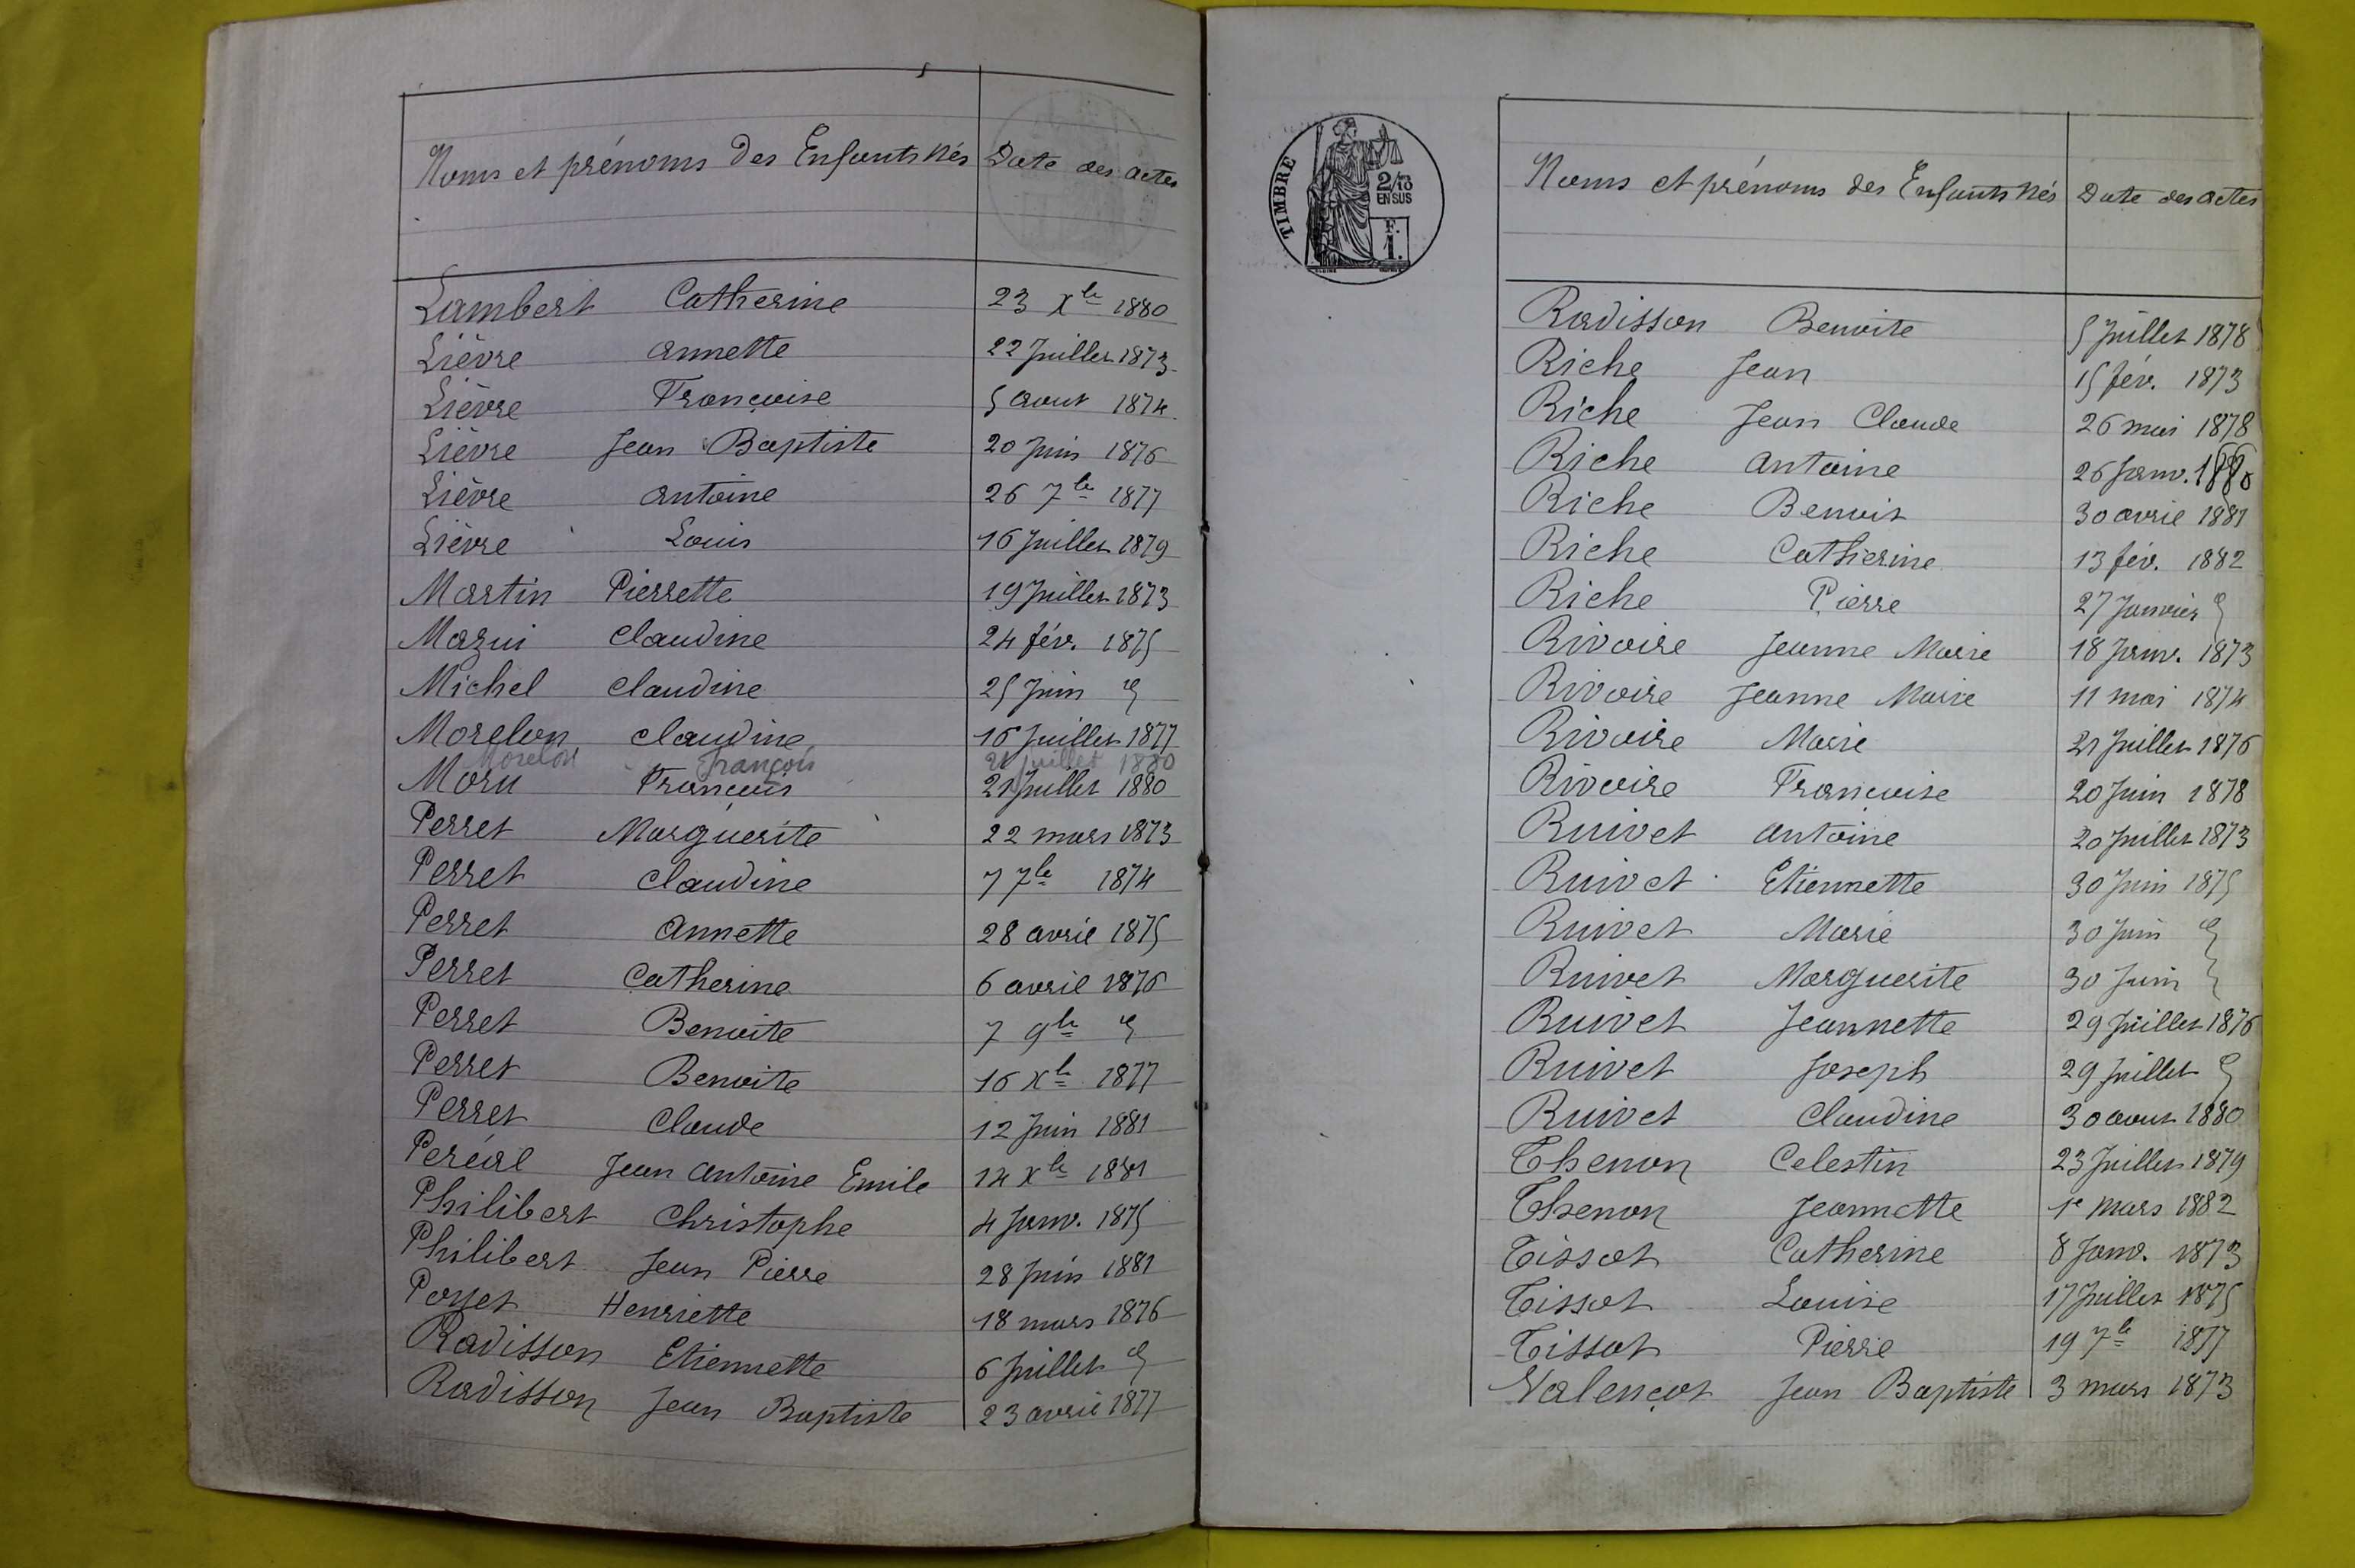 Noms et prénoms des Enfants Nés Date des actes
Lambert Catherine 23 Xbre 1880
Lièvre annette 22 Juillet 1873
Lièvre Françoise 5 aout 1874
Lièvre Jean Baptiste 20 Juin 1876
Lièvre antoine 26 7bre 1877
Lièvre Louis 16 Juillet 1879
Martin Pierrette 19 Juillet 1873
Mazui Claudine 24 fév. 1875
Michel Claudine 25 Juin
Morelon Claudine 16 Juillet 1877
Morelon François 21 juillet 1880
Moru François 21 Juillet 1880
Perret Marguerite 22 mars 1873
Perret Claudine 7 7bre 1874
Perret annette 28 avril 1875
Perret Catherine 6 avril 1876
Perret Benoite 7 9bre
Perret Benoite 16 Xbre 1877
Perret Claude 12 Juin 1881
Peréal Jean Antoine Emile 14 Xbre 1881
Philibert Christophe 4 Janv. 1875
Philibert Jean Pierre 28 Juin 1881
Poyet Henriette 18 mars 1876
Radisson Etiennette 6 Juillet
Radisson Jean Baptiste 23 avril 1877
TIMBRE
2/10
EN SUS
F.
1.
Noms et prénoms des Enfants Nés Date des actes
Radisson Benoite 5 Juillet 1878
Riche Jean 15 fév. 1873
Riche Jean Claude 26 mai 1878
Riche antoine 26 Janv. 1880
Riche Benoit 30 avril 1881
Riche Catherine 13 fév. 1882
Riche Pierre 27 Janvier
Rivoire Jeanne Marie 18 Janv. 1873
Rivoire Jeanne Marie 11 mai 1874
Rivoire Marie 21 Juillet 1876
Rivoire Françoise 20 Juin 1878
Ruivet antoine 20 Juillet 1873
Ruivet Etiennette 30 Juin 1875
Ruivet Marie 30 Juin
Ruivet Marguerite 30 Juin
Ruivet Jeannette 29 Juillet 1876
Ruivet Joseph 29 Juillet
Ruivet Claudine 30 aout 1880
Thenon Celestin 23 Juillet 1879
Thenon Jeannette 1e mars 1882
Tissot Catherine 8 Janv. 1873
Tissot Louise 17 Juillet 1875
Tissot Pierre 19 7bre 1877
Valençot Jean Baptiste 3 mars 1873